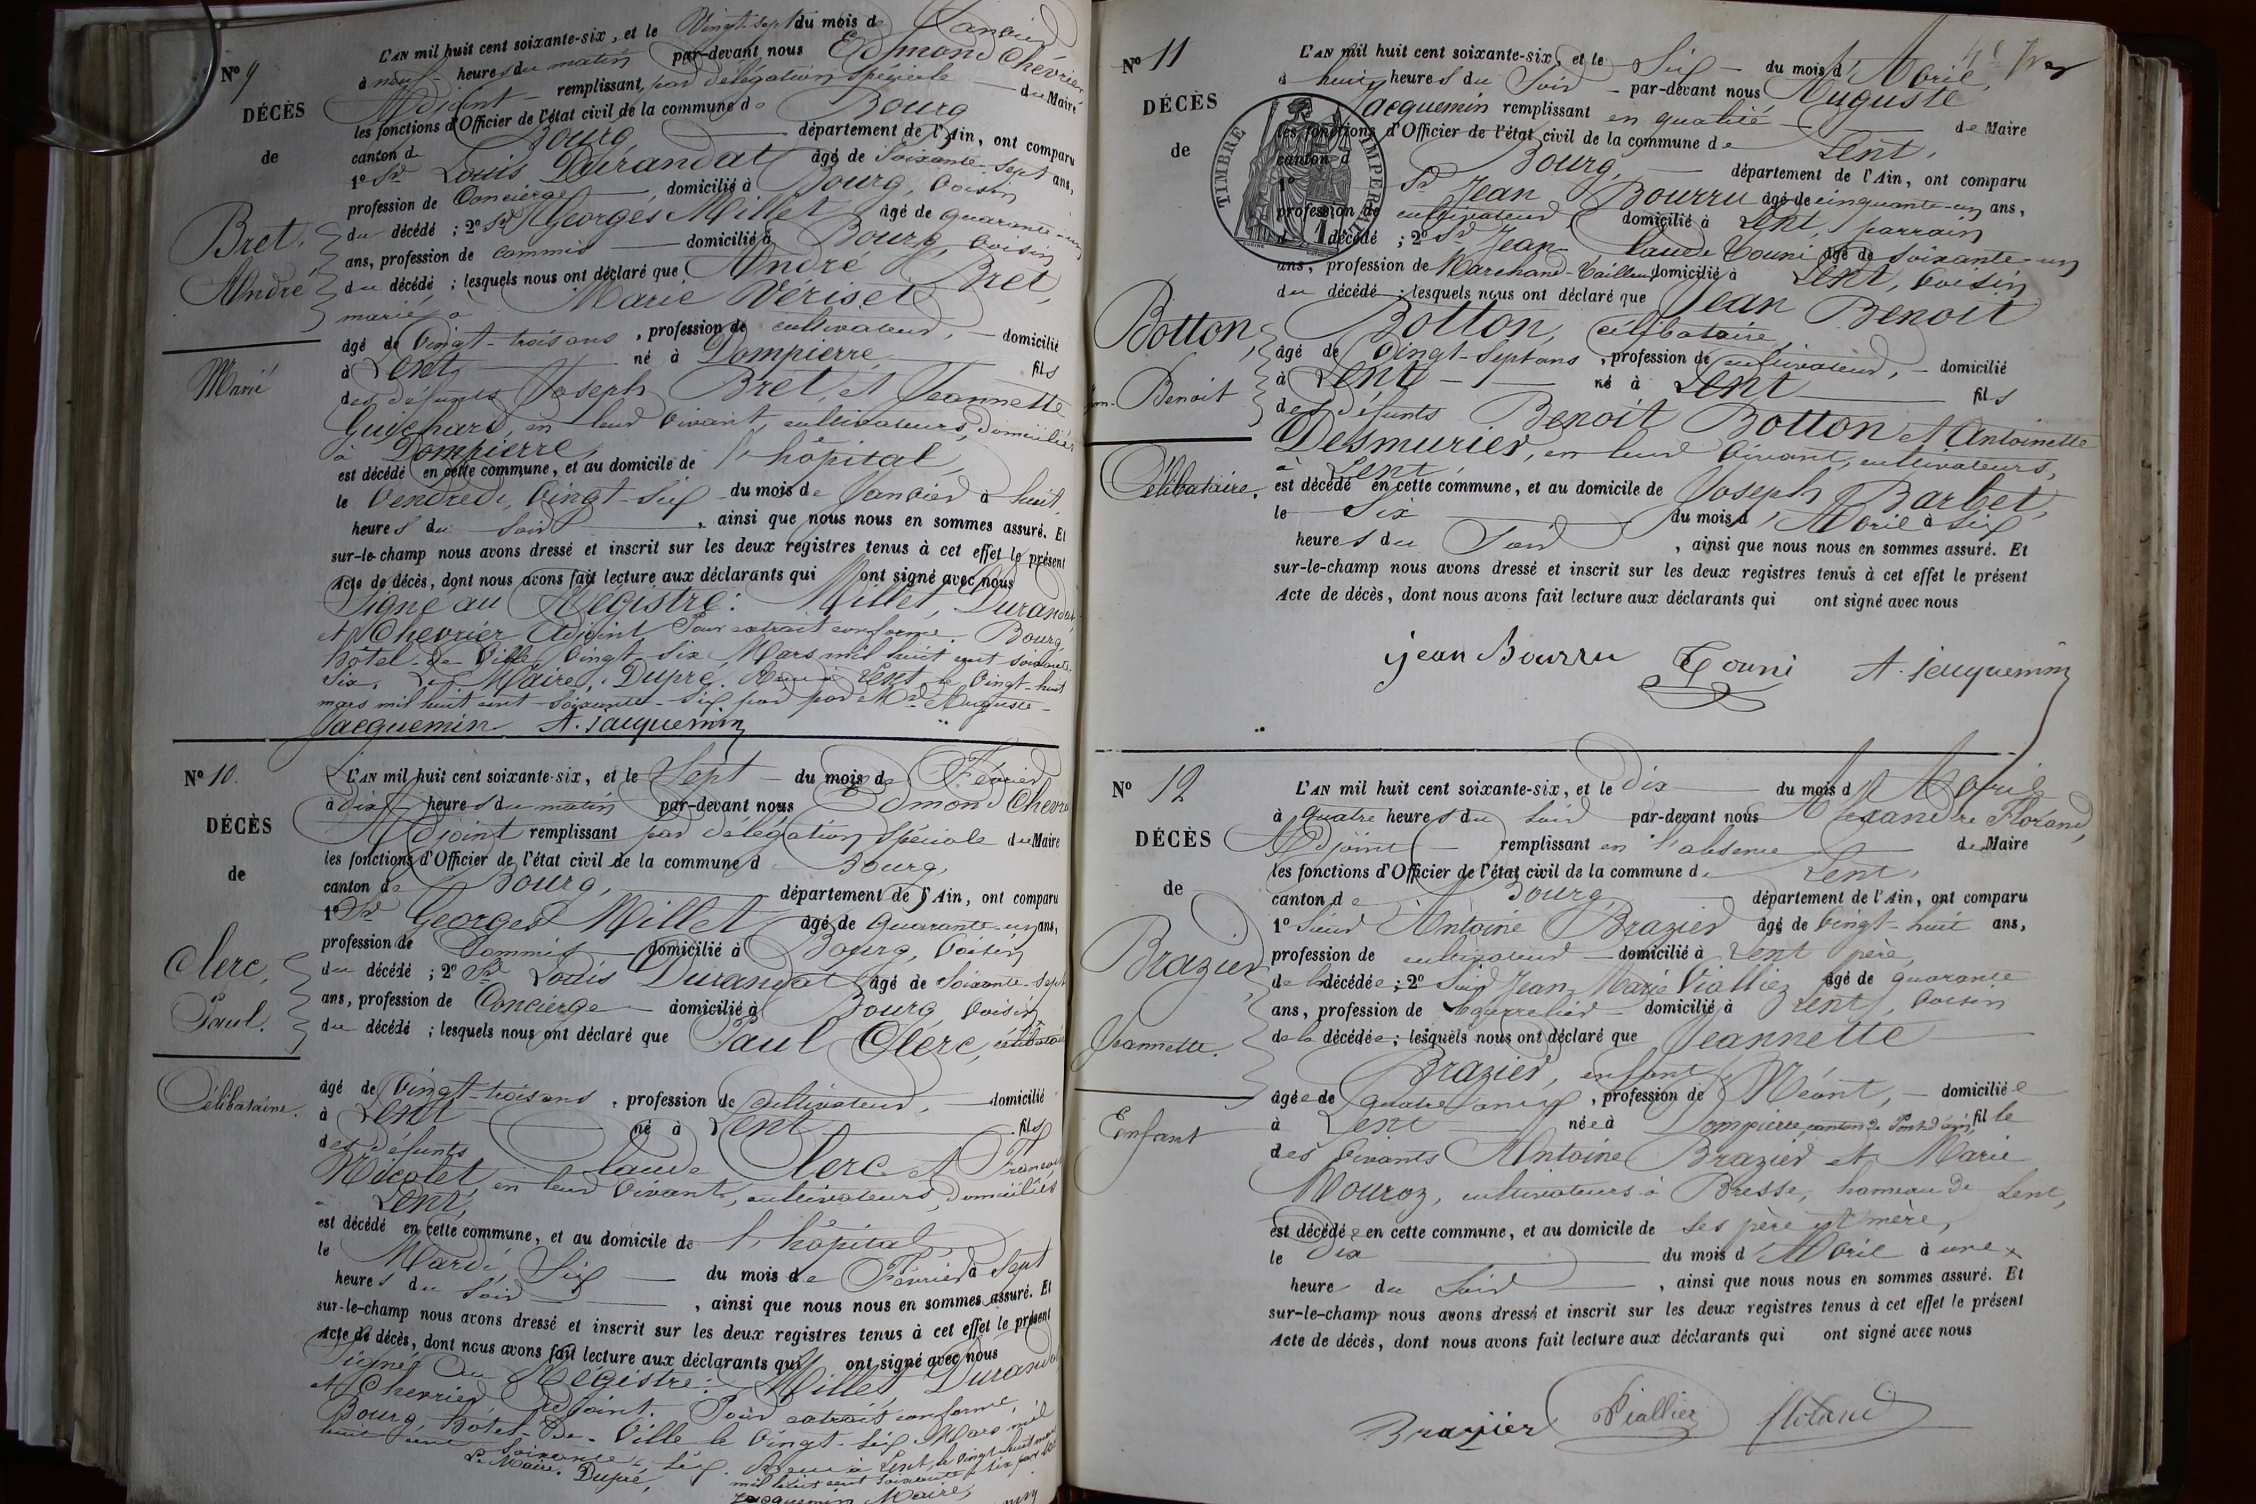 Nº 9
DÉCÈS
de
Bret,
André
Marié
L'AN mil huit cent soixante-six, et le Vingt-sept du mois de Janvier
à neuf heures du matin par-devant nous Edmond Chevrier
Adjoint remplissant, par délégation spéciale du Maire
les fonctions d'Officier de l'état civil de la commune de Bourg
canton de Bourg département de l'Ain, ont comparu
1º Sr Louis Durandat âgé de Soixante-Sept ans,
profession de Concierge domicilié à Bourg, voisin
du décédé ; 2º Sr Georges Millet âgé de quarante-un
ans, profession de commis domicilié à Bourg, voisin
du décédé ; lesquels nous ont déclaré que André Bret,
marié à Marie Vériset
âgé de Vingt-trois ans, profession de cultivateur, domicilié
à Lent né à Dompierre fils
des défunts Joseph Bret, et Jeannette
Guichard, en leur vivant, cultivateurs, domiciliés
à Dompierre,
est décédé en cette commune, et au domicile de l'hôpital,
le Vendredi, Vingt-Six du mois de Janvier à huit
heures du soir, ainsi que nous nous en sommes assuré. Et
sur-le-champ nous avons dressé et inscrit sur les deux registres tenus à cet effet le présent
Acte de décès, dont nous avons fait lecture aux déclarants qui ont signé avec nous
Signé au Registre : Millet, Durandat,
et Chevrier Adjoint. Pour extrait conforme. Bourg,
hôtel-de-Ville Vingt-Six Mars mil huit cent soixante
Six. Le Maire, Dupré. Reçu à Lent, le Vingt-huit
mars mil huit cent soixante-Six, par Mr Auguste
Jacquemin A. Jacquemin
Nº 10.
DÉCÈS
de
Clerc,
Paul.
Célibataire.
L'AN mil huit cent soixante-six, et le Sept du mois de Février
à dix heures du matin par-devant nous Edmond Chevrier
Adjoint remplissant par délégation Spéciale du Maire
les fonctions d'Officier de l'état civil de la commune d Bourg,
canton de Bourg, département de l'Ain, ont comparu
1º Sr Georges Millet âgé de Quarante-un ans,
profession de Commis domicilié à Bourg, voisin
du décédé ; 2º Sr Louis Durandat âgé de Soixante-Sept
ans, profession de Concierge domicilié à Bourg, voisin
du décédé ; lesquels nous ont déclaré que Paul Clerc, célibataire
âgé de Vingt-trois ans, profession de cultivateur, domicilié
à Lent né à Lent fils
des défunts Claude Clerc et Françoise
Nicolet, en leur vivant, cultivateurs, domiciliés
à Lent,
est décédé en cette commune, et au domicile de l'hôpital,
le Mardi, Six du mois de Février à Sept
heures du Soir, ainsi que nous nous en sommes assuré. Et
sur-le-champ nous avons dressé et inscrit sur les deux registres tenus à cet effet le présent
Acte de décès, dont nous avons fait lecture aux déclarants qui ont signé avec nous
Signé au Régistre : Millet Durandat
et Chevrier adjoint. Pour extrait conforme,
Bourg, hôtel-De-Ville le Vingt-Six Mars mil
huit cent Soixante-Six. Reçu à Lent, le Vingt-huit mars
Le Maire, Dupré, mil huit cent soixante six par
Jacquemin Maire,
Nº 11
DÉCÈS
de
Botton,
Jean-Benoit
Célibataire.
TIMBRE IMPERIAL
L'AN mil huit cent soixante-six, et le Six du mois d'Avril,
à huit heures du Soir par-devant nous Auguste
Jacquemin remplissant en qualité de Maire
les fonctions d'Officier de l'état civil de la commune de Lent,
canton d Bourg, département de l'Ain, ont comparu
1º Sr Jean Bourru âgé de cinquante-un ans,
profession de cultivateur domicilié à Lent, parrain
d décédé ; 2º Sr Jean Claude Touni âgé de soixante-un
ans, profession de Marchand-Tailleur domicilié à Lent, voisin
du décédé ; lesquels nous ont déclaré que Jean Benoit
Botton, célibataire
âgé de Vingt-Sept ans, profession de cultivateur, domicilié
à Lent né à Lent fils
des défunts Benoit Botton et Antoinette
Desmurier, en leur vivant, cultivateurs,
à Lent
est décédé en cette commune, et au domicile de Joseph Barbet,
le Six du mois d'Avril à Six
heures du Soir, ainsi que nous nous en sommes assuré. Et
sur-le-champ nous avons dressé et inscrit sur les deux registres tenus à cet effet le présent
Acte de décès, dont nous avons fait lecture aux déclarants qui ont signé avec nous
jean Bourru Touni A. Jacquemin
Nº 12
DÉCÈS
de
Brazier
Jeannette.
Enfant
L'AN mil huit cent soixante-six, et le Dix du mois d'Avril
à quatre heures du soir par-devant nous Alexandre Florand,
Adjoint remplissant en l'absence du Maire
les fonctions d'Officier de l'état civil de la commune de Lent,
canton de Bourg, département de l'Ain, ont comparu
1º Sieur Antoine Brazier âgé de Vingt-huit ans,
profession de cultivateur domicilié à Lent père,
de la décédée ; 2º Sieur Jean Marie Viallier âgé de quarante
ans, profession de bourrelier domicilié à Lent, voisin
de la décédée ; lesquels nous ont déclaré que Jeannette
Brazier, enfant,
âgée de quatre ans, profession de Néant, domiciliée
à Lent née à Dompierre, canton de Pont d'Ain, fille
des vivants Antoine Brazier et Marie
Mouroz, cultivateurs à Bresse, hameau de Lent,
est décédée en cette commune, et au domicile de ses père et mère,
le Dix du mois d'Avril à une
heure du Soir, ainsi que nous nous en sommes assuré. Et
sur-le-champ nous avons dressé et inscrit sur les deux registres tenus à cet effet le présent
Acte de décès, dont nous avons fait lecture aux déclarants qui ont signé avec nous
Brazier Viallier florand